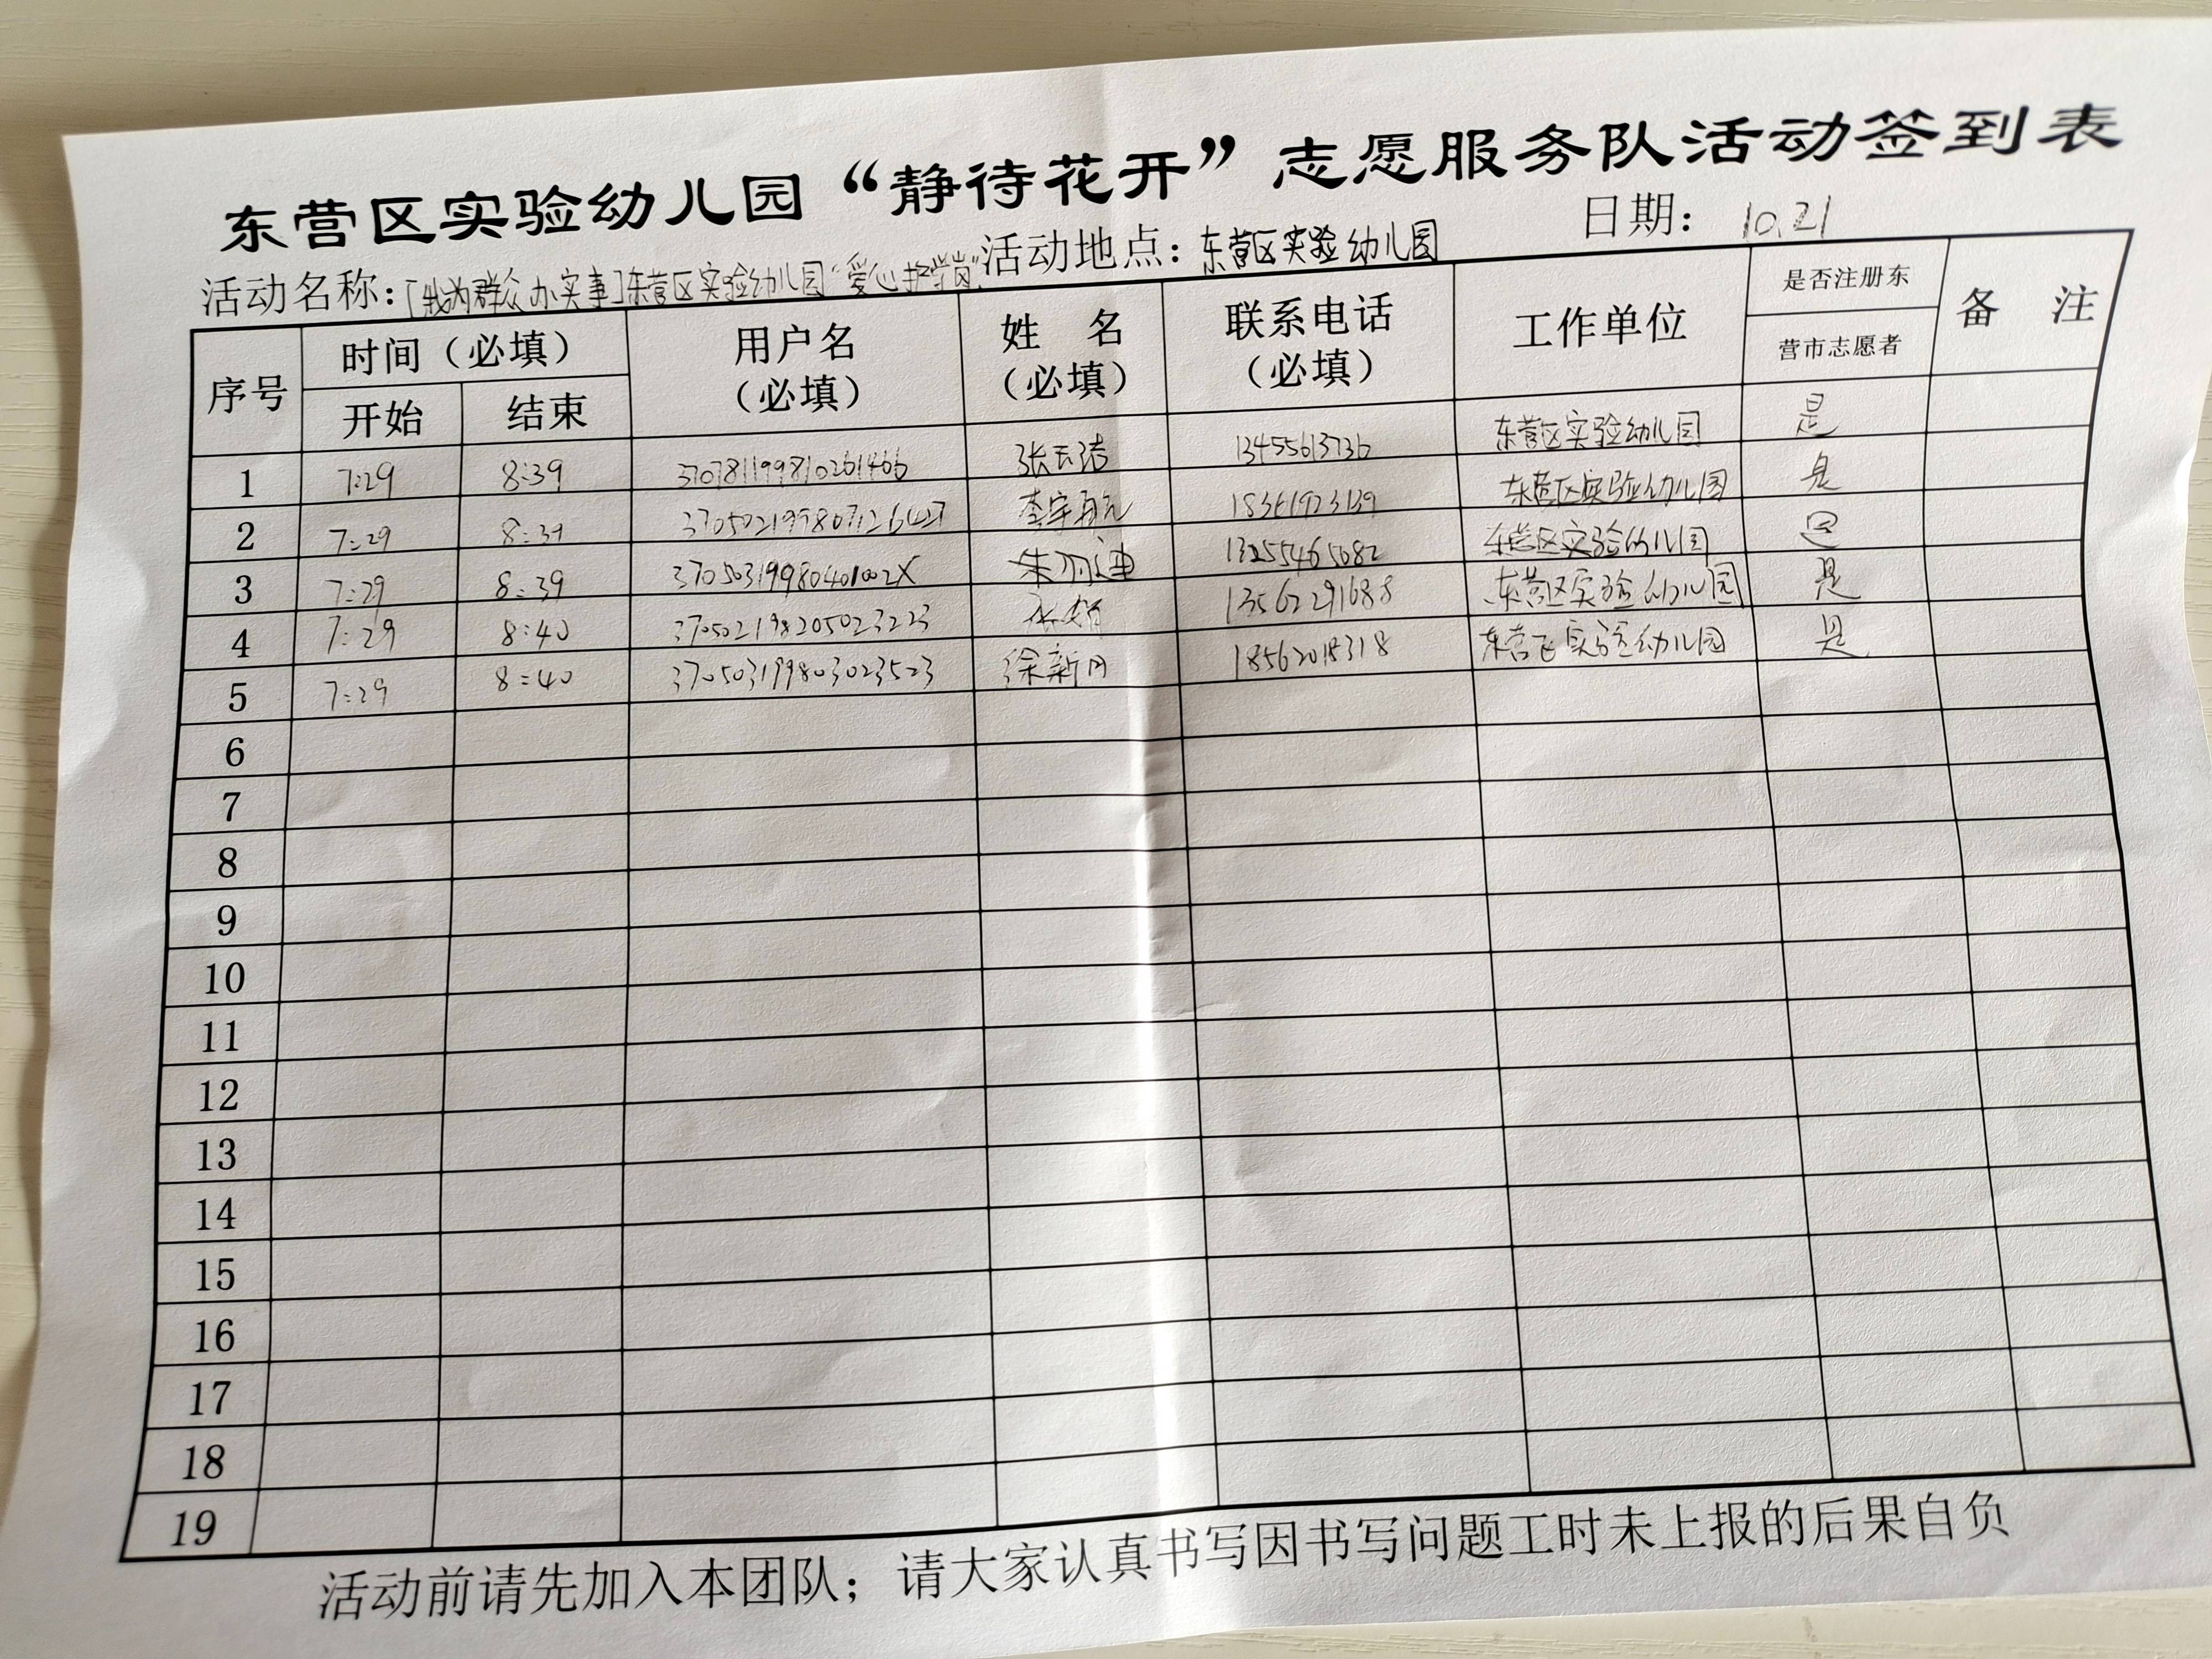 东营区实验幼儿园“静待花开”志愿服务队活动签到表
活动名称:[我为群众办实事]东营区实验幼儿园“爱心护学岗” 活动地点:东营区实验幼儿园 日期: 10.21
序号 时间(必填) 用户名 姓 名 联系电话 工作单位 是否注册东 备 注
开始 结束 (必填) (必填) (必填) 营市志愿者
1 7:29 8:39 370781199810261466 13455613736 东营区实验幼儿园 是
2 7:29 8:39 李宇航 东营区实验幼儿园 是
3 7:29 8:39 37050319980401002X 朱羽迪 13255465082 东营区实验幼儿园 是
4 7:29 8:40 370502198205023223 13562291688 东营区实验幼儿园 是
5 7:29 8:40 370503199803023523 徐新月 18562018318 东营区实验幼儿园 是
6
7
8
9
10
11
12
13
14
15
16
17
18
19
活动前请先加入本团队;请大家认真书写因书写问题工时未上报的后果自负